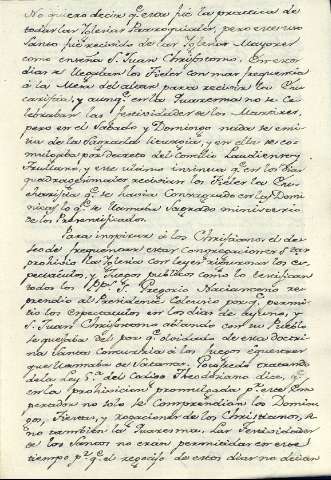 No quiero decir q.e esta fue la practica de
todas las Iglesias Parroquiales, pero este uso
Santo fue recivido de las Iglesias Mayores
como enseña S. Juan Chrisostomo. En estos
dias se llegaban los Fieles con mas frequencia
à la Mesa del altar para recivir la Eu-
caristia, y aunq.e en la Quaresma no se Ce-
lebraban las festividades de los Martires,
pero en el Sabado y Domingo nada se omi-
tia de la Sagrada Liturgia, y en ella se co-
mulgaba por decreto del Concilio Laudicense y
Trullano, y este ultimo insinua q.e en los dias
quadragesimales recivian los Fieles la Eu-
charistia q.e se havia Consagrado en los Domi-
nicos, lo q.e se llamaba Sagrado ministerio
de los Presantificados.
Para inspirar à los Christianos el de-
seo de frequentar estas congregaciones
prohivia la Iglesia con leyes rigurosas los es-
pectaculos, y Juegos publicos como lo testifican
todos los S. Gregorio Nacianzeno re-
prendio al Presidente Celeusio por q.e permi-
tio los espectaculos en los dias de ayuno, y
S. Juan Chrisostomo ablando con su Pueblo
se quejaba del por q.e olvidado de esta doctri-
na Santa concurria à los juegos equestres
que llamaba de Satanas. Gotofredo tratando
de la ley 5.a del Codigo Theodosiano dice, q.e
en la prohivicion promulgada p.r este Em-
perador no solo se Comprendian los Domin-
gos, Fiestas, y rogaciones de los Christianos, si
no tambien la Quaresma. Las festividades
de los Santos no eran permitidas en este
tiempo p.r q.e el regocijo de estos dias no decian